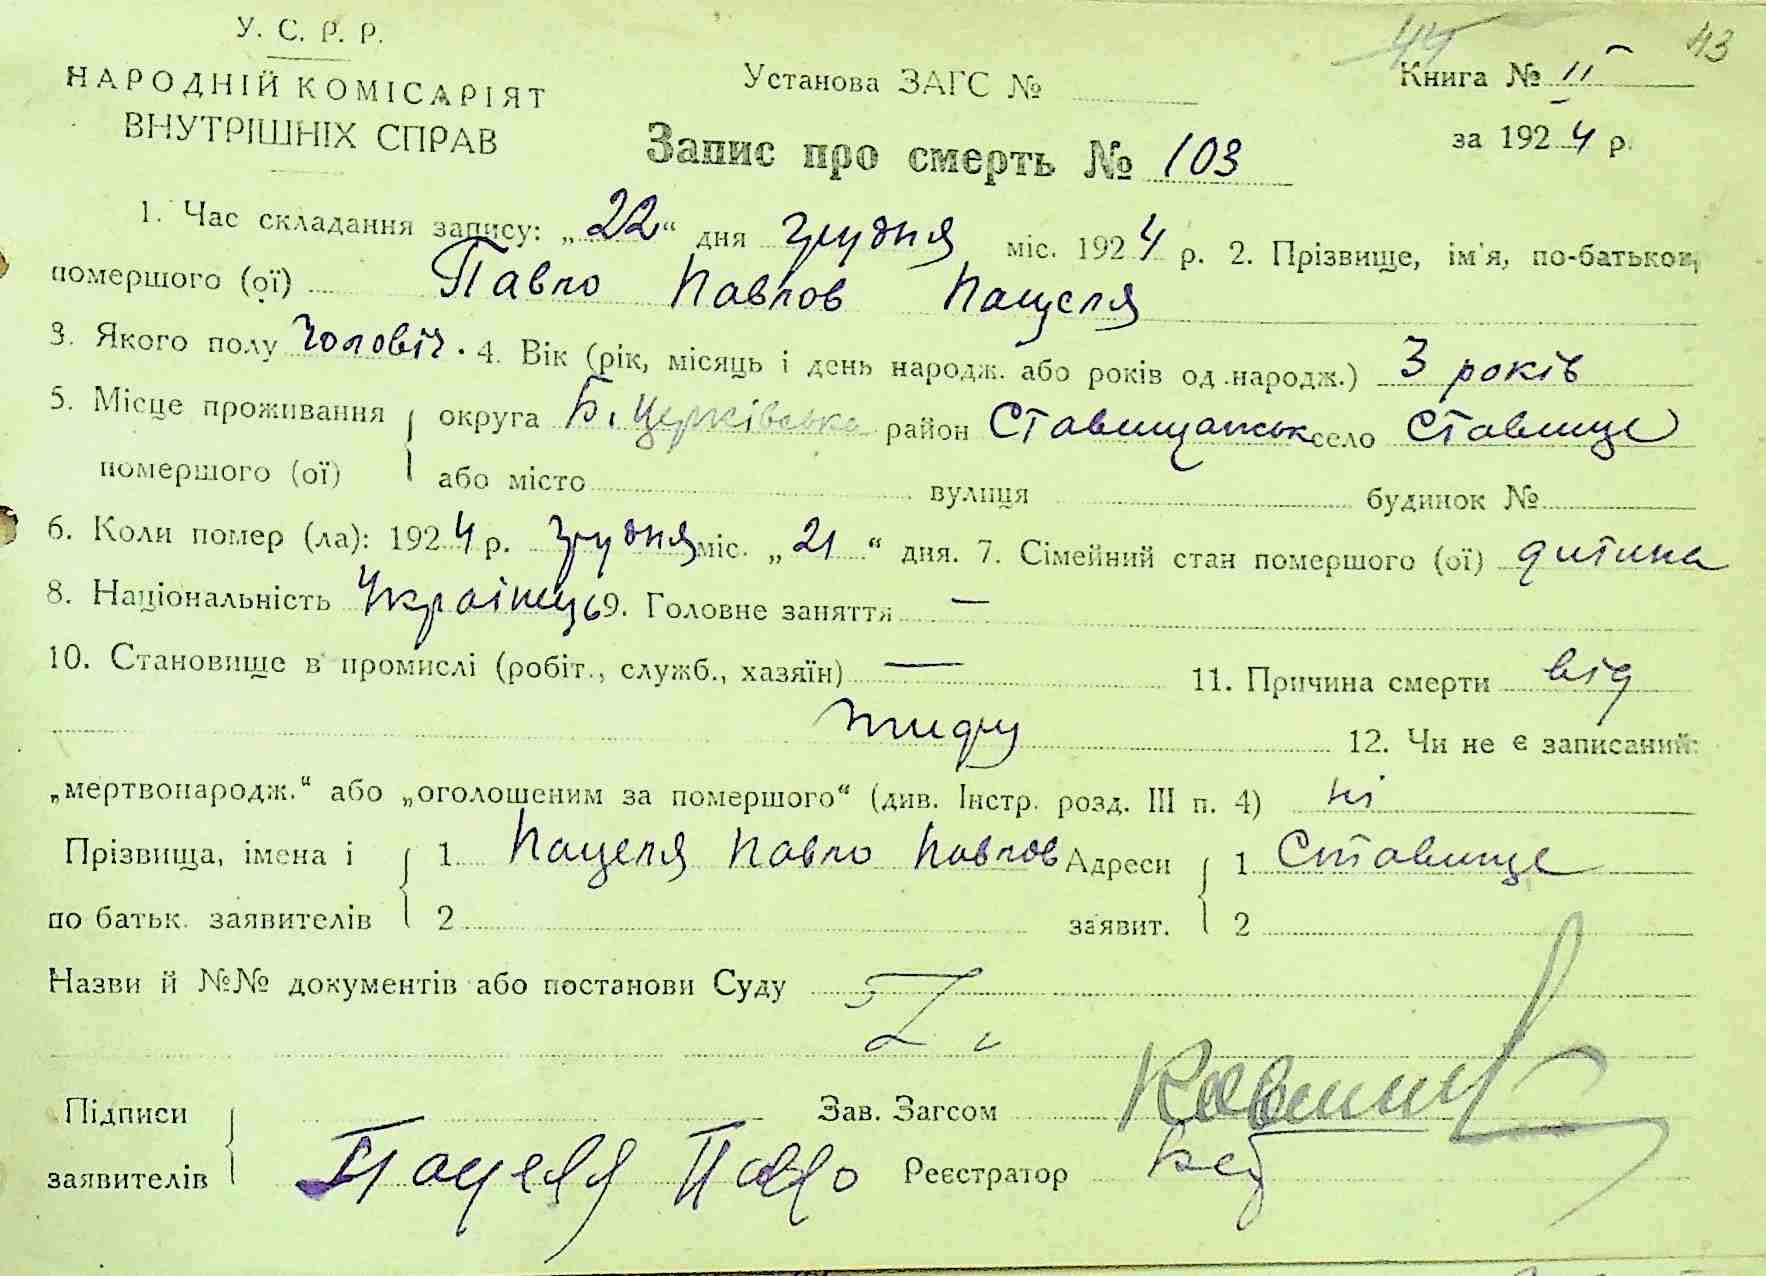 У. С. Р. Р.
НАРОДНІЙ КОМІСАРІЯТ
ВНУТРІШНІХ СПРАВ
Установа ЗАГС №
44 43
Книга № II
за 1924 р.
Запис про смерть № 103
1. Час складання запису: „22“ дня грудня міс. 1924 р. 2. Прізвище, ім'я, по-батькові
помершого (ої) Павло Павлов Пацеля
3. Якого полу чоловіч. 4. Вік (рік, місяць і день народж. або років од народж.) 3 років
5. Місце проживання округа Б. Церківська район Ставищанськ село Ставище
помершого (ої) або місто вулиця будинок №
6. Коли помер (ла): 1924 р. грудня міс. „21“ дня. 7. Сімейний стан помершого (ої) дитина
8. Національність Українець 9. Головне заняття —
10. Становище в промислі (робіт., служб., хазяїн) — 11. Причина смерти від
тифу 12. Чи не є записаний:
„мертвонародж.“ або „оголошеним за помершого“ (див. Інстр. розд. III п. 4) ні
Прізвища, імена і 1 Пацеля Павло Павлов Адреси 1 Ставище
по батьк. заявителів 2 заявит. 2
Назви й №№ документів або постанови Суду
Підписи Зав. Загсом
заявителів Пацеля Павло Реєстратор